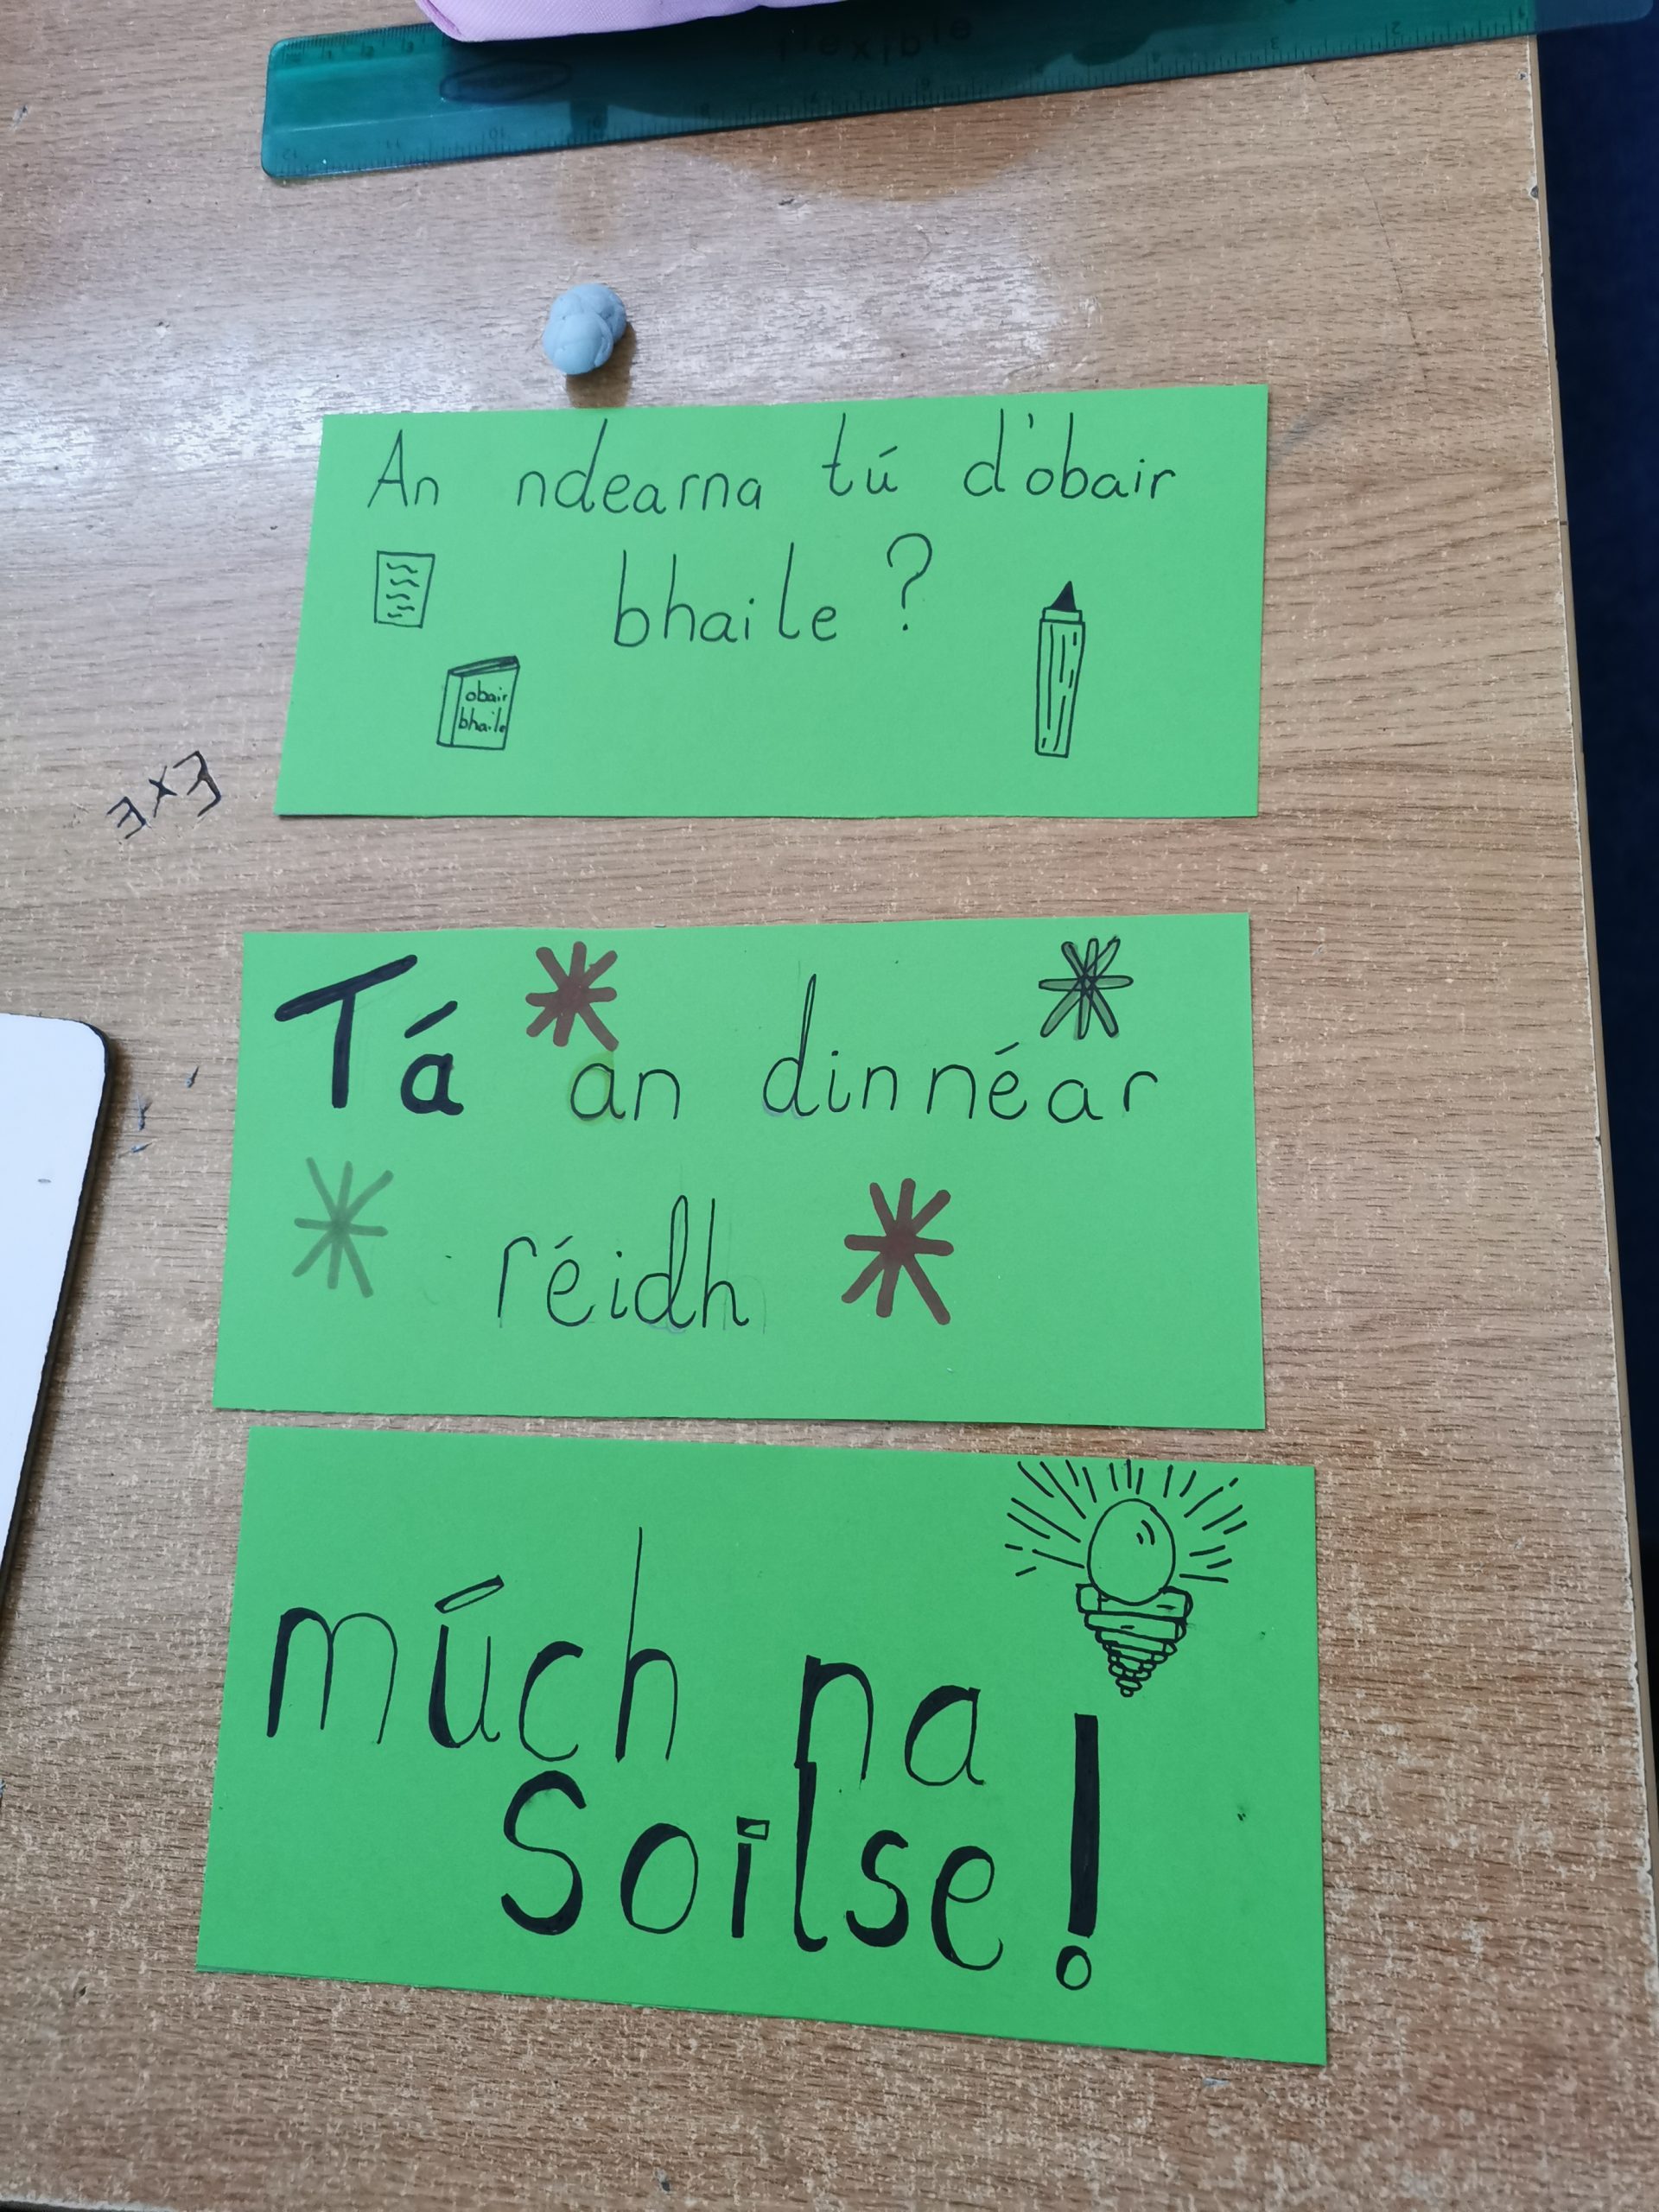 flexible
An ndearna tú d'obair
bhaile ?
obair
bhaile
3x3
Tá an dinnéar
réidh
múch na
Soilse!